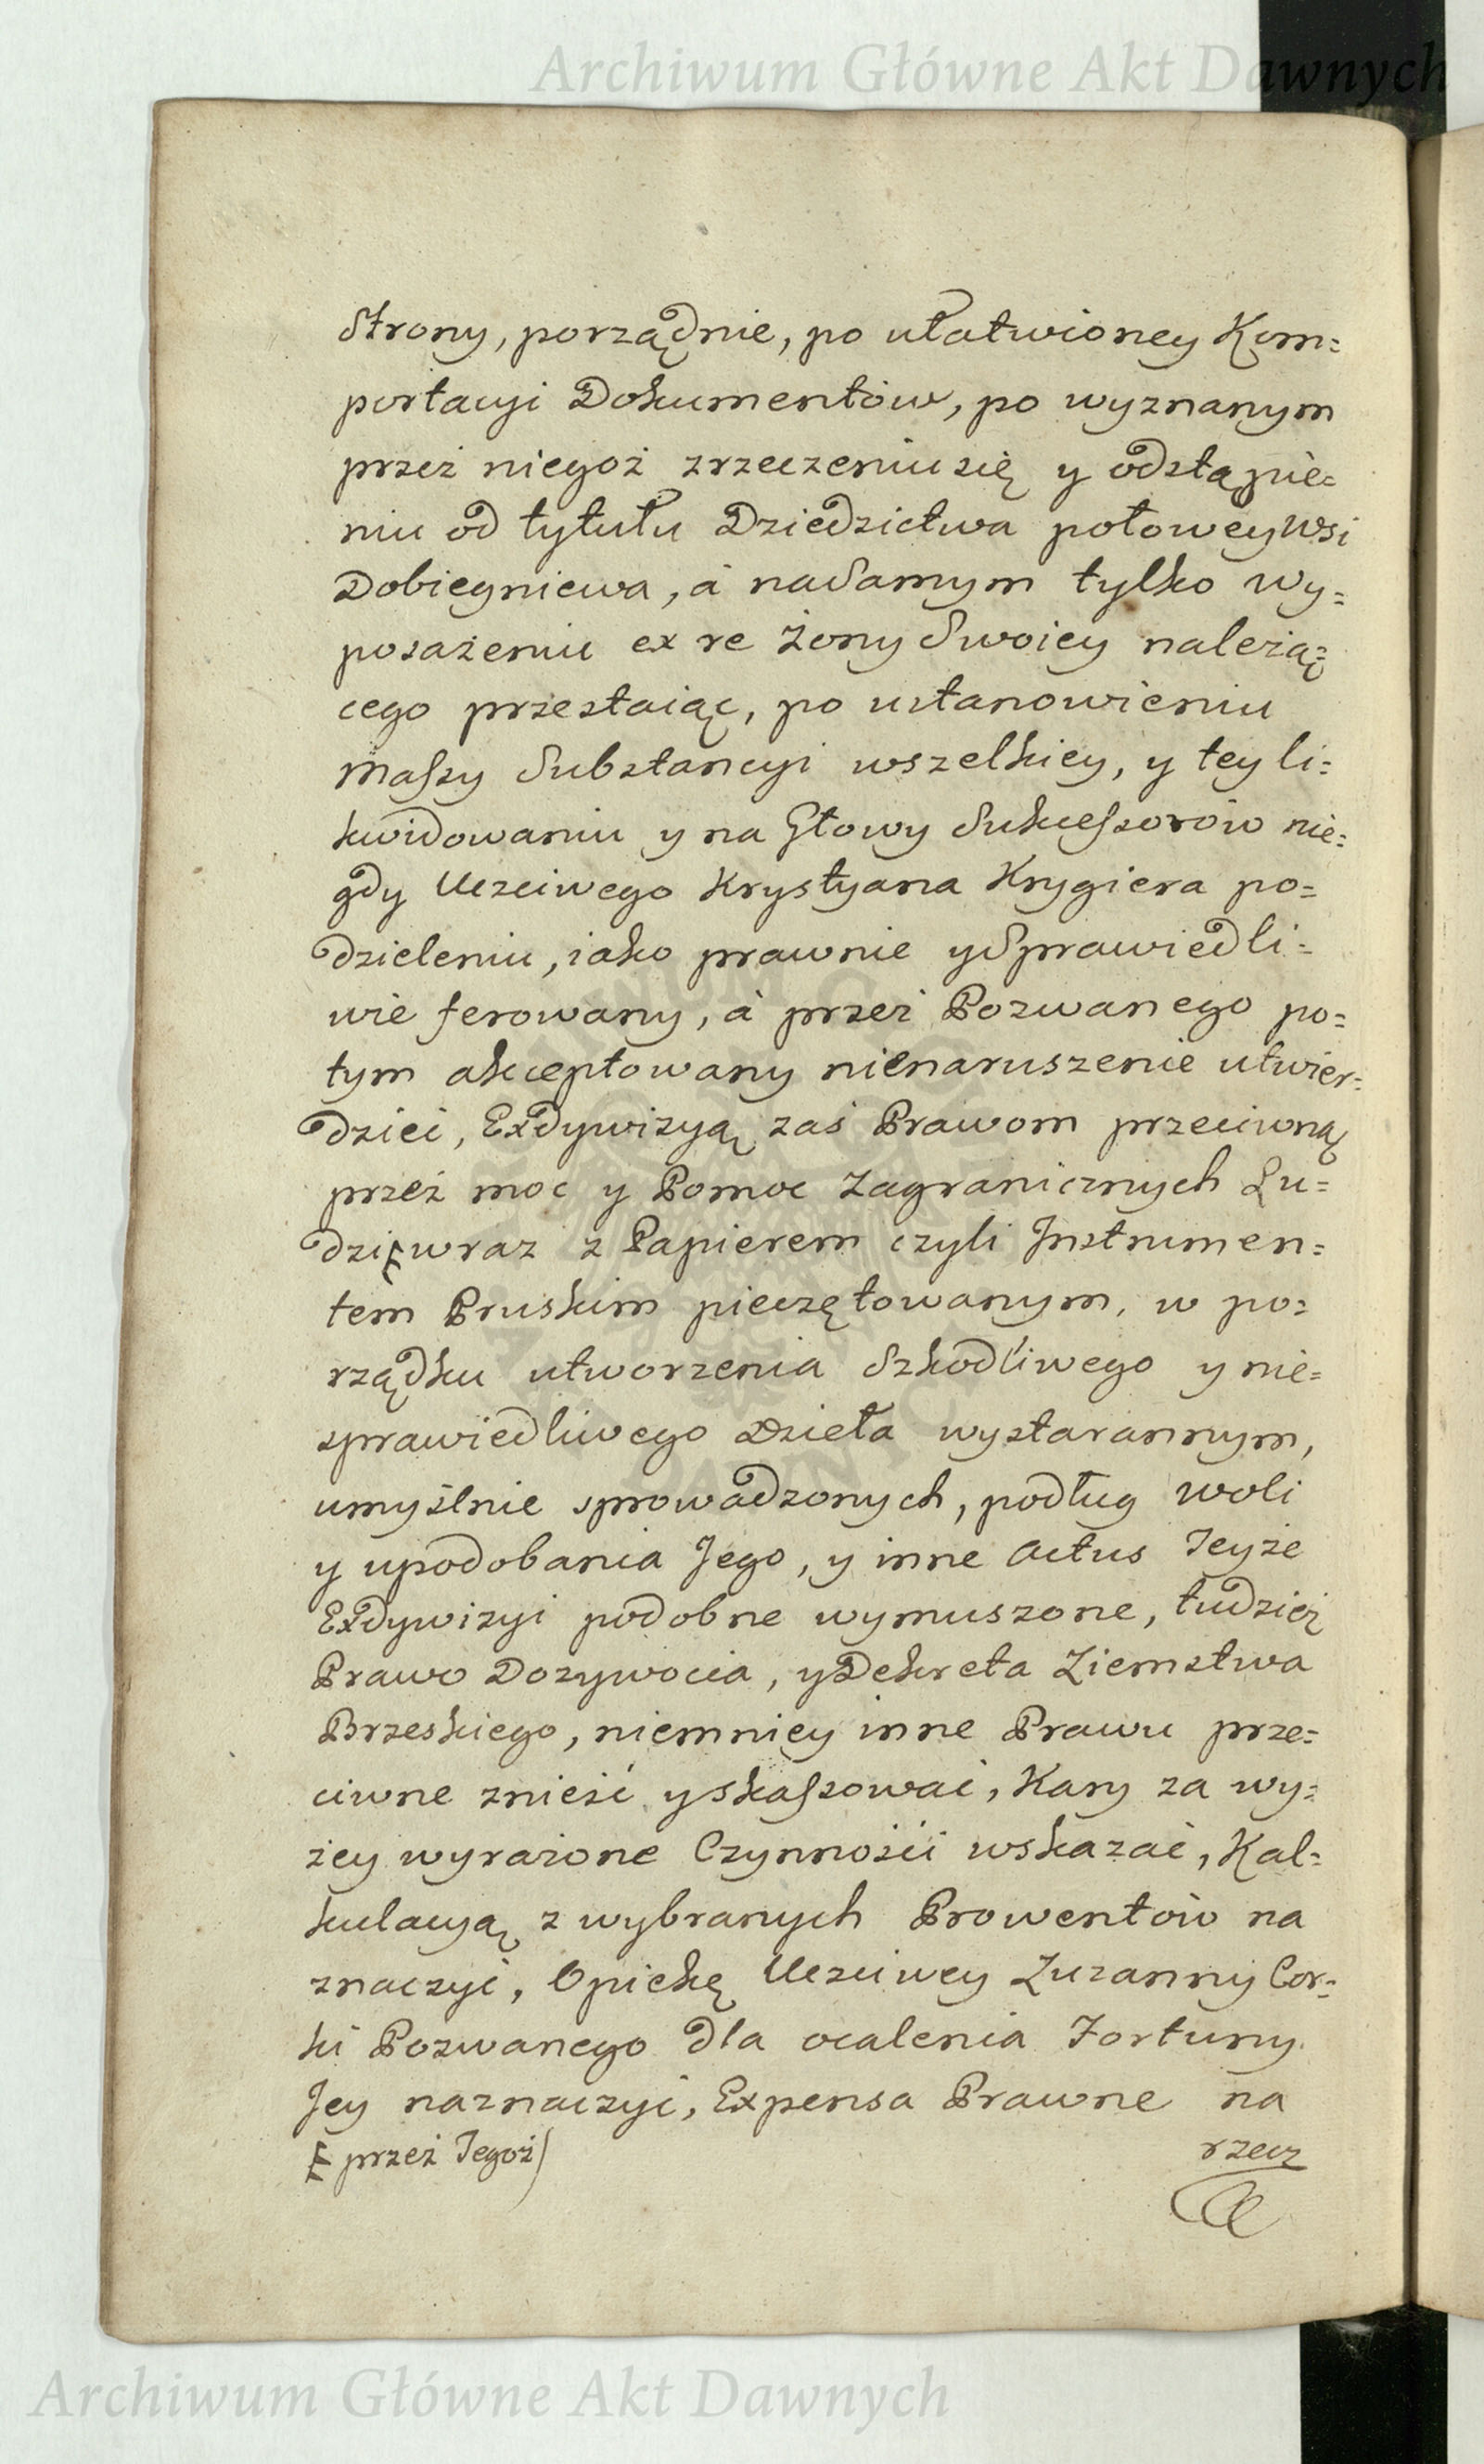 Archiwum Główne Akt Dawnych
Strony, porządnie, po ułatwioney Kom=
portacyi Dokumentów, po wyznanym
przez niegoż zrzeczeniu się y odstąpie=
niu od tytułu Dziedzictwa połowey Wsi
Dobiegniewa, á na samym tylko wy=
posażeniu ex re Żony Swoiey należą=
cego przestaiąc, po ustanowieniu
Massy Substancyi wszelkiey, y tey li=
kwidowaniu y na Głowy Sukcessorów nie=
gdy Uczciwego Krystyana Krygiera po=
dzieleniu, iako prawnie y Sprawiedli=
wie ferowany, á przez Pozwanego po=
tym akceptowany nienaruszenie utwier=
dzić, Exdywizyą zaś Prawom przeciwną
przez moc y Pomoc Zagranicznych Lu=
dzi ⁋ wraz z Papierem czyli Instrumen=
tem Pruskim pieczętowanym, w po=
rządku utworzenia Szkodliwego y nie=
sprawiedliwego Dzieła wystarannym,
umyślnie sprowadzonych, podług woli
y upodobania Jego, y inne Actus Teyże
Exdywizyi podobne wymuszone, tudzież
Prawo Dożywocia, y Dekreta Ziemstwa
Brzeskiego, niemniey inne Prawu prze=
ciwne znieść y skassować, Kary za wy=
żey wyrażone Czynności wskazać, Kal=
kulacyą z wybranych Prowentów na
znaczyć, Opiekę Uczciwey Zuzanny Cor=
ki Pozwanego dla ocalenia Fortuny
Jey naznaczyć, Expensa Prawne na
⁋ przez Tegoż)
rzecz
Archiwum Główne Akt Dawnych